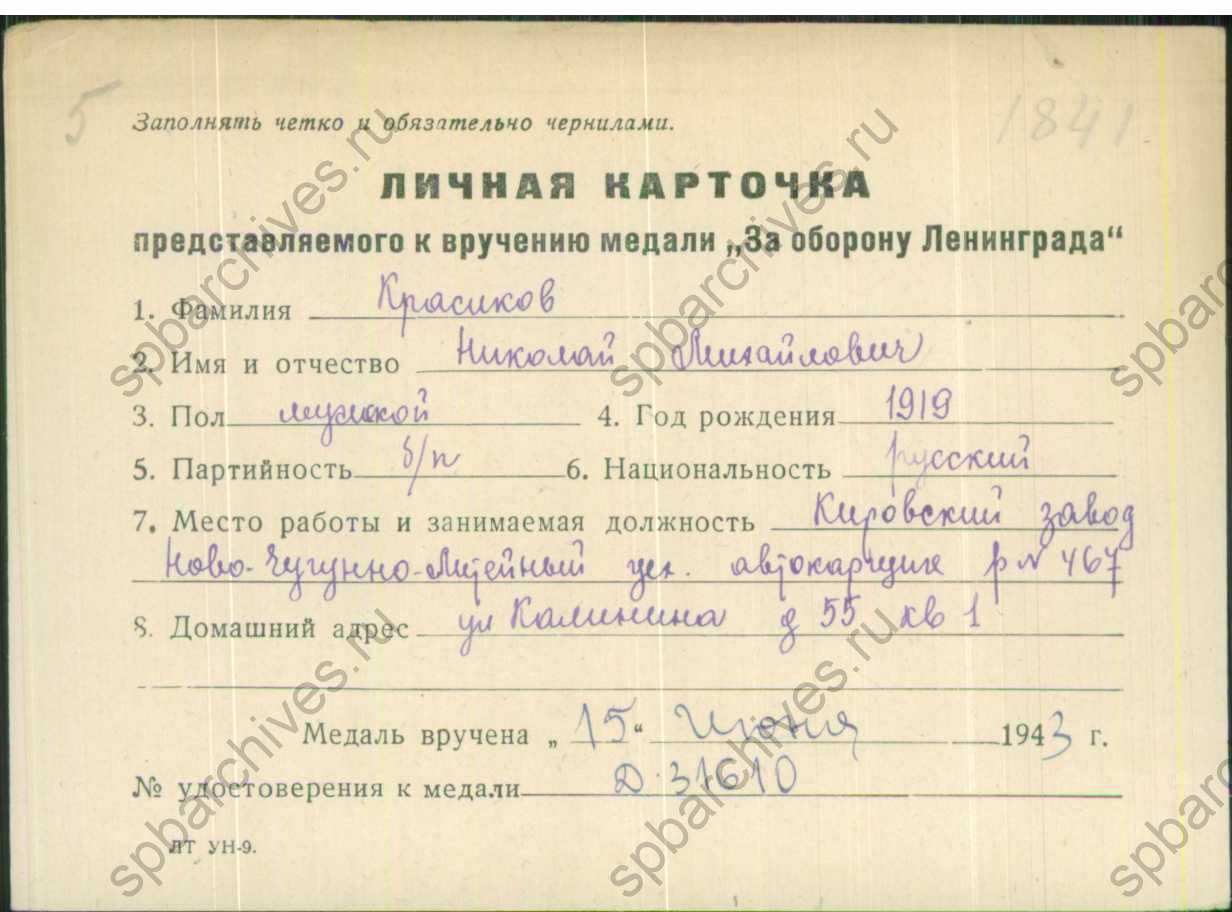 5
1841
Заполнять четко и обязательно чернилами.
ЛИЧНАЯ КАРТОЧКА
представляемого к вручению медали „За оборону Ленинграда“
1. Фамилия Красиков
2. Имя и отчество Николай Михайлович
3. Пол мужской 4. Год рождения 1919
5. Партийность б/п 6. Национальность русский
7. Место работы и занимаемая должность Кировский завод
Ново-Чугунно-Литейный цех. р № 467
8. Домашний адрес ул Калинина д 55 кв 1
Медаль вручена „15“ Июня 1943 г.
№ удостоверения к медали Д.31610
ЛТ УН-9.
spbarchives.ru